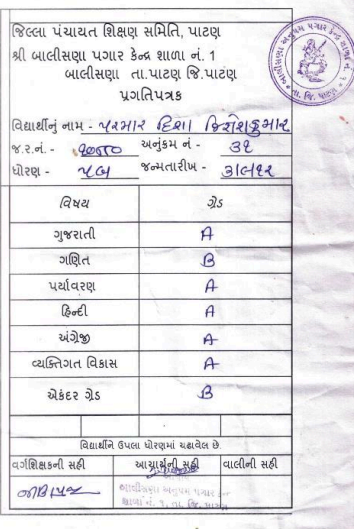 જિલ્લા પંચાયત શિક્ષણ સમિતિ, પાટણ
શ્રી બાલીસણા પગાર કેન્દ્ર શાળા નં. 1
બાલીસણા તા.પાટણ જિ.પાટણ
પ્રગતિપત્રક
વિદ્યાર્થીનું નામ - પરમાર દિશા
જ.ર.નં. - અનુંક્રમ નં - ૩૧
ધોરણ - ૫બ જન્મતારીખ -
વિષય ગ્રેડ
ગુજરાતી A
ગણિત B
પર્યાવરણ A
હિન્દી A
અંગ્રેજી A
વ્યક્તિગત વિકાસ A
એકંદર ગ્રેડ B
વિદ્યાર્થીને ઉપલા ધોરણમાં ચઢાવેલ છે.
વર્ગશિક્ષકની સહી આચાર્યની સહી વાલીની સહી
બાલીસણા અનુપમ પગાર કેન્દ્ર